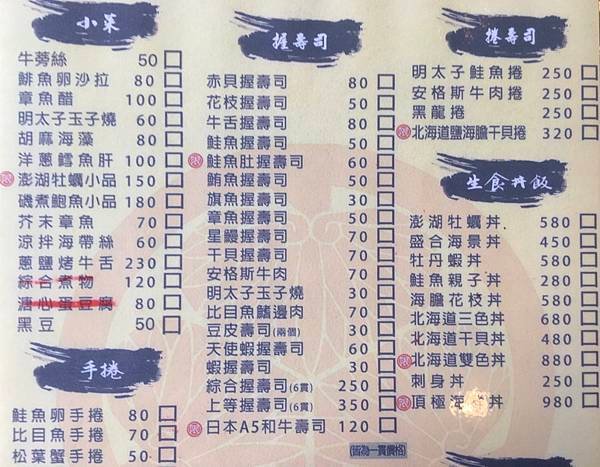 小菜
牛蒡絲 50
鯡魚卵沙拉 80
章魚醋 100
明太子玉子燒 60
胡麻海藻 80
洋蔥鱈魚肝 100
限 澎湖牡蠣小品 150
磯煮鮑魚小品 180
芥末章魚 70
涼拌海帶絲 60
蔥鹽烤牛舌 230
綜合煮物 120
溏心蛋豆腐 80
黑豆 50
手捲
鮭魚卵手捲 80
比目魚手捲 70
松葉蟹手捲 50
握壽司
赤貝握壽司 80
花枝握壽司 30
牛舌握壽司 80
鮭魚握壽司 30
限 鮭魚肚握壽司 60
鮪魚握壽司 30
旗魚握壽司 30
章魚握壽司 50
星鰻握壽司 70
干貝握壽司 70
安格斯牛肉 70
明太子玉子燒 30
比目魚鰭邊肉 70
豆皮壽司(兩個) 30
天使蝦握壽司 60
蝦握壽司 30
綜合握壽司(6貫) 250
上等握壽司(6貫) 350
限 日本A5和牛壽司 120
(皆為一貫價格)
捲壽司
明太子鮭魚捲 250
安格斯牛肉捲 250
黑龍捲 250
限 北海道鹽海膽干貝捲 320
生食丼飯
澎湖牡蠣丼 580
盛合海景丼 450
牡丹蝦丼 580
鮭魚親子丼 280
海膽花枝丼 580
北海道三色丼 680
北海道干貝丼 480
限 北海道雙色丼 880
刺身丼
限 頂極海 丼 980